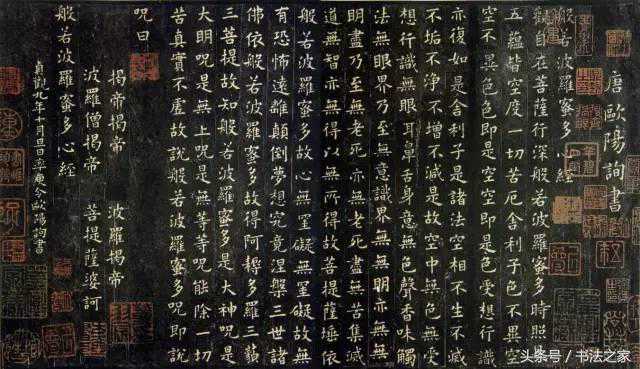 唐歐陽詢書
般若波羅蜜多心經
觀自在菩薩行深般若波羅蜜多時照見
五蘊皆空度一切苦厄舍利子色不異空
空不異色色即是空空即是色受想行識
亦復如是舍利子是諸法空相不生不滅
不垢不淨不增不減是故空中無色無受
想行識無眼耳鼻舌身意無色聲香味觸
法無眼界乃至無意識界無無明亦無無
明盡乃至無老死亦無老死盡無苦集滅
道無智亦無得以無所得故菩提薩埵依
般若波羅蜜多故心無罣礙無罣礙故無
有恐怖遠離顛倒夢想究竟涅槃三世諸
佛依般若波羅蜜多故得阿耨多羅三藐
三菩提故知般若波羅蜜多是大神呪是
大明呪是無上呪是無等等呪能除一切
苦真實不虛故說般若波羅蜜多呪即說
呪曰
揭帝揭帝 波羅揭帝
波羅僧揭帝 菩提薩婆訶
般若波羅蜜多心經
貞觀九年十月旦日率更令歐陽詢書
头条号／书法之家